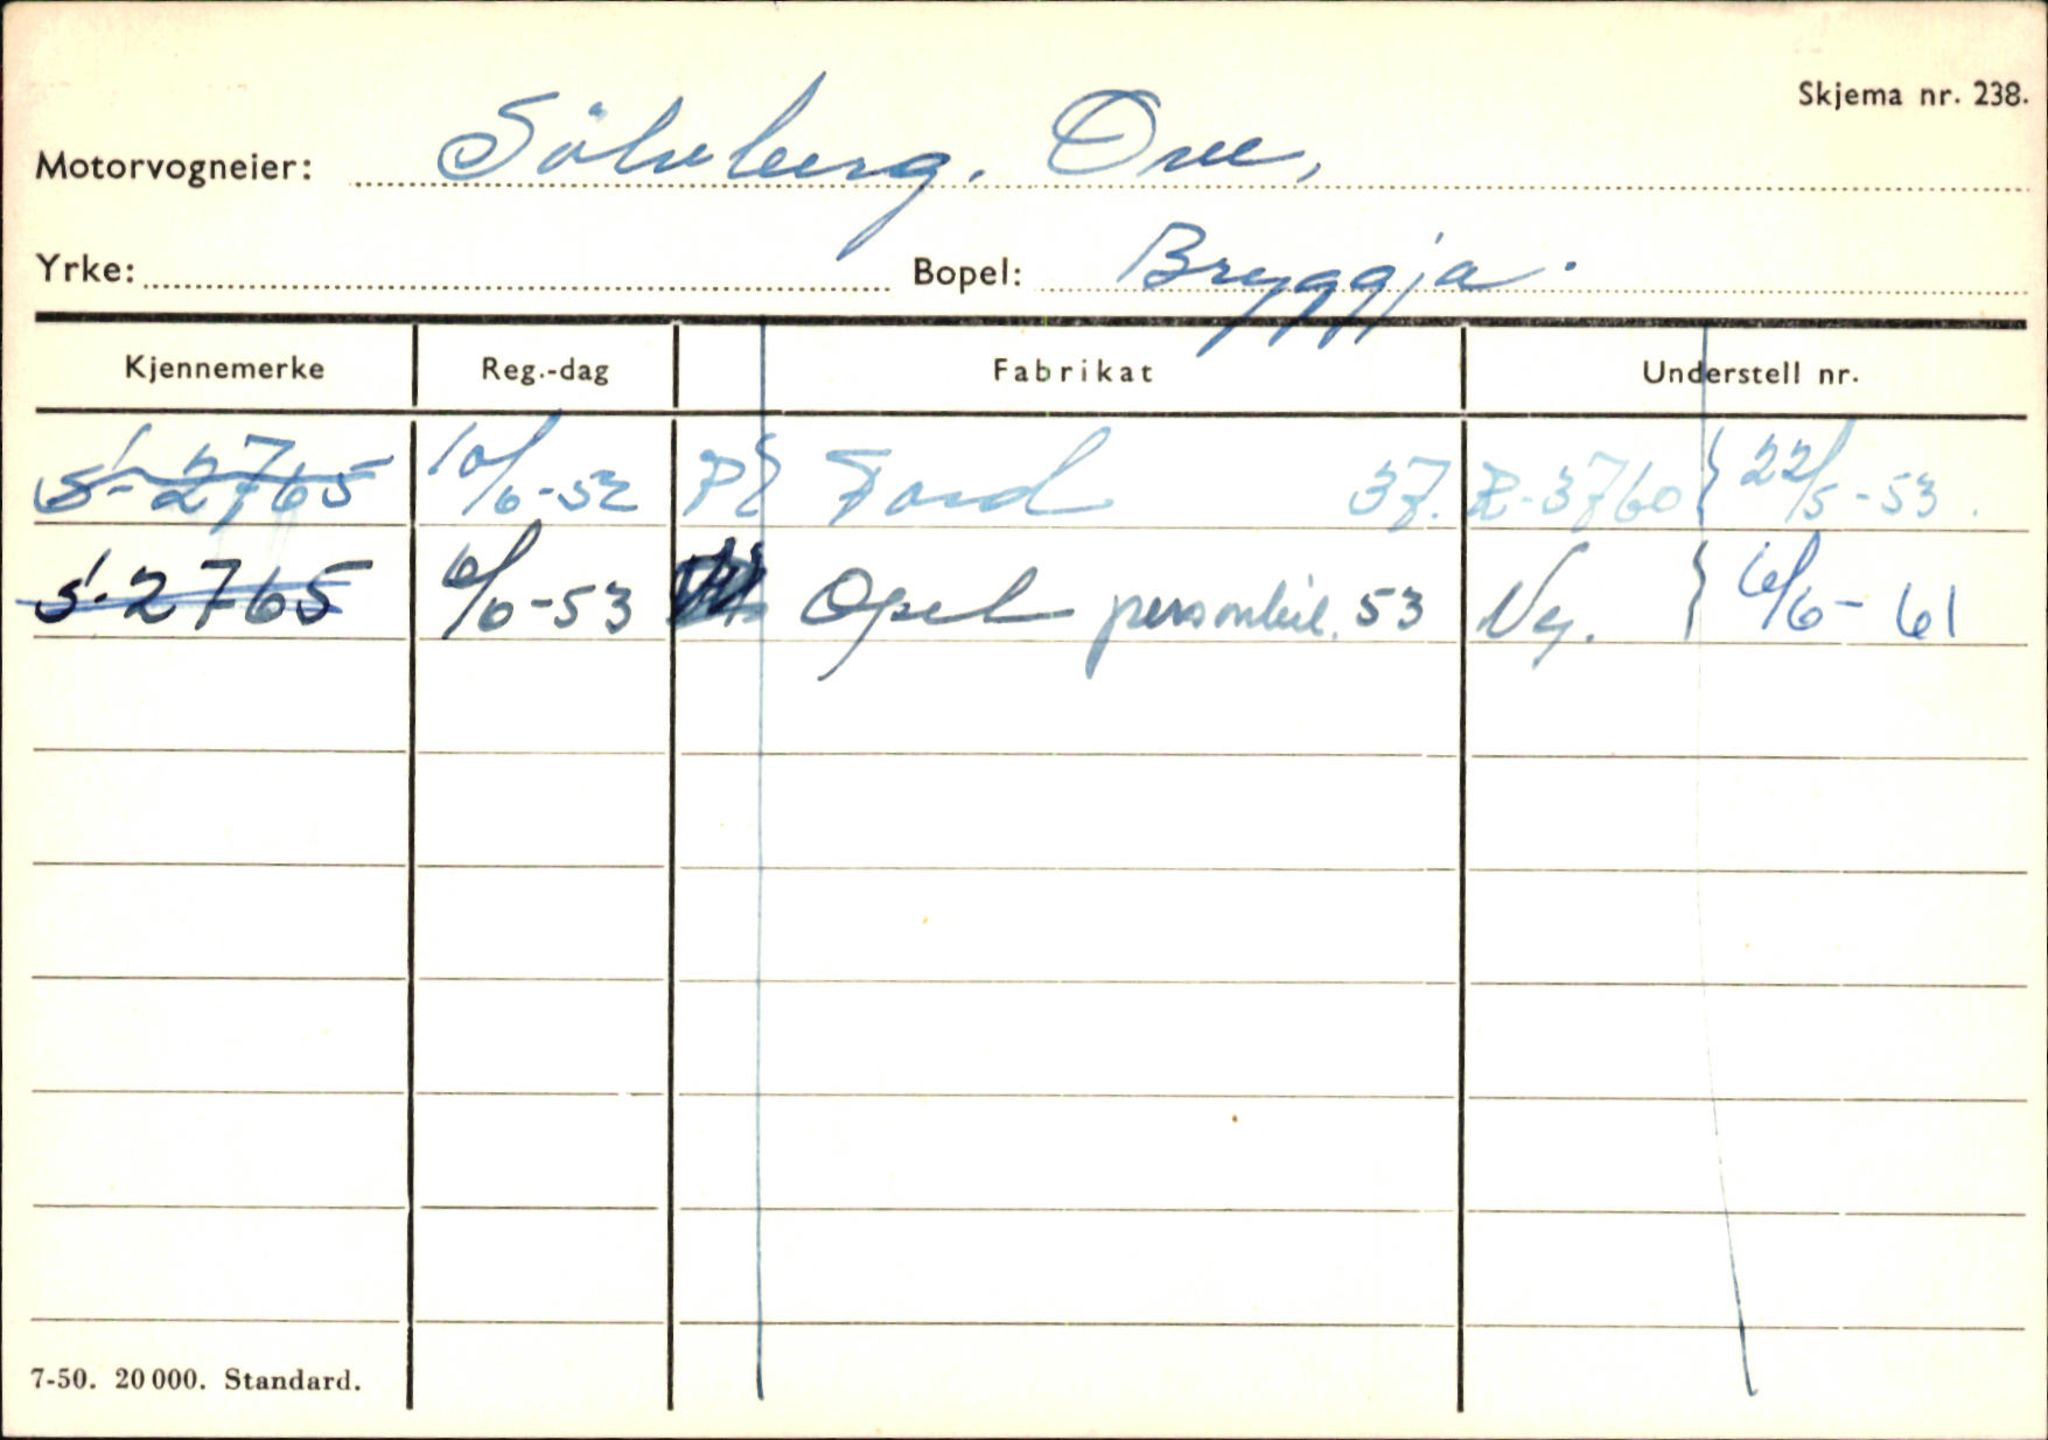 Skjema nr. 238.
Motorvogneier: Sölvberg. Ove,
Yrke: Bopel: Bryggja.
Kjennemerke Reg.-dag Fabrikat Understell nr.
S-2765 10/6-52 Ford 37. R-3760 22/5-53.
S-2765 6/6-53 Opel personbil. 53 Ny. 6/6-61
7-50. 20 000. Standard.